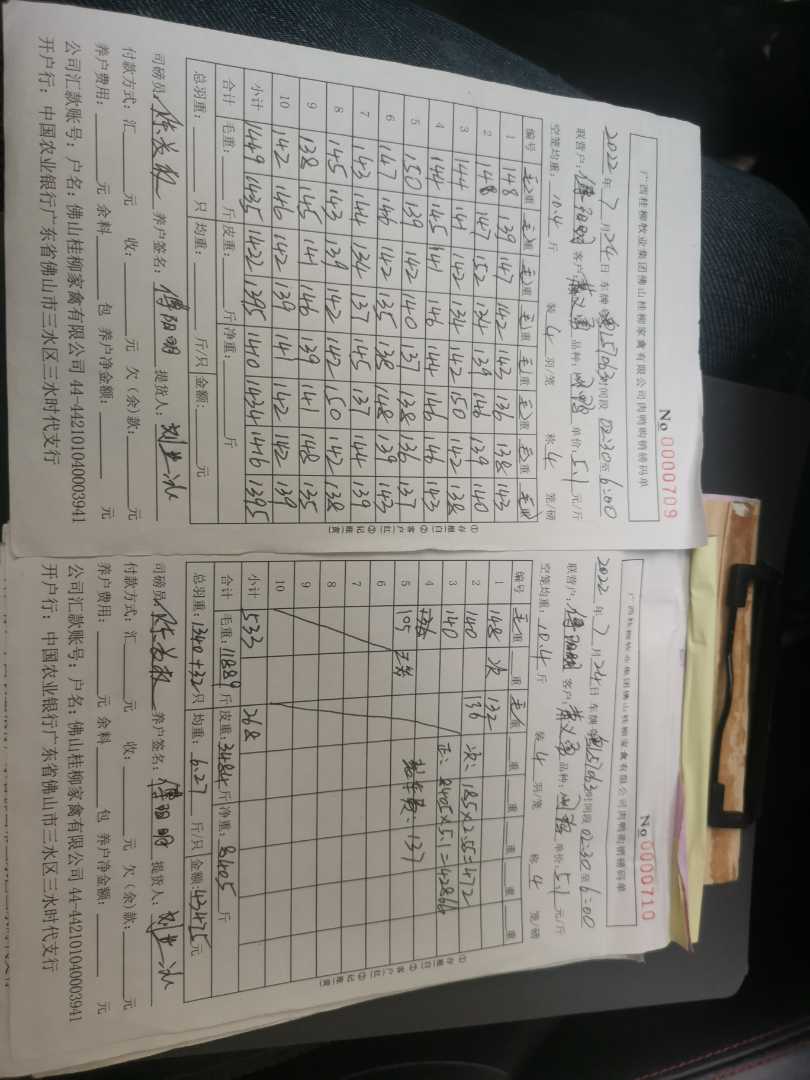 No 0000709
广西桂柳牧业集团佛山桂柳家禽有限公司肉鸭购销磅码单
2022年7月24日 车牌 时间段 02:30至6:00
联营户: 傅阳明 客户 品种: 单价: 5.1元/斤
空笼均重: 10.4斤 装4羽/笼 称4笼/磅
编号 毛重 毛重 毛重 毛重 毛重 毛重 毛重 毛重
1 148 139 147 142 143 136 138 143
2 148 147 152 134 139 146 139 140
3 144 141 142 134 142 150 142 138
4 144 145 141 146 144 146 146 143
5 150 139 142 140 137 138 136 137
6 147 146 142 135 138 148 139 143
7 143 144 134 137 145 137 144 139
8 145 143 139 142 142 150 142 138
9 138 145 141 146 139 141 148 135
10 142 146 142 139 141 142 142 139
小计 1449 1435 1422 1395 1410 1434 1416 1395
合计 毛重: 斤 皮重: 斤 净重: 斤
总羽重: 只 均重: 斤/只 金额: 元
司磅员 养户签名: 傅阳明 提货人:
付款方式: 汇 元 收: 元 欠(余)款: 元
养户费用: 元 余料 包 养户净金额: 元
公司汇款账号: 户名: 佛山桂柳家禽有限公司 44-442101040003941
开户行: 中国农业银行广东省佛山市三水区三水时代支行
①存根(白) ②客户(红) ③记账(黄)
No 0000710
广西桂柳牧业集团佛山桂柳家禽有限公司肉鸭购销磅码单
2022年7月24日 车牌 时间段 02:30至6:00
联营户: 傅阳明 客户 品种: 单价: 5.1元/斤
空笼均重: 10.4斤 装4羽/笼 称4笼/磅
编号 毛重 重 毛重 重 重 重 重 重
1 148 次 132
2 140 136 次: 185×2.55=472
3 140 正: 8405×5.1=42866
4
5 105 正 : 137
6
7
8
9
10
小计 533 268
合计 毛重: 11889斤 皮重: 3484斤 净重: 8405斤
总羽重: 1340+32只 均重: 6.27斤/只 金额: 43475元
司磅员 养户签名: 傅阳明 提货人:
付款方式: 汇 元 收: 元 欠(余)款: 元
养户费用: 元 余料 包 养户净金额: 元
公司汇款账号: 户名: 佛山桂柳家禽有限公司 44-442101040003941
开户行: 中国农业银行广东省佛山市三水区三水时代支行
①存根(白) ②客户(红) ③记账(黄)